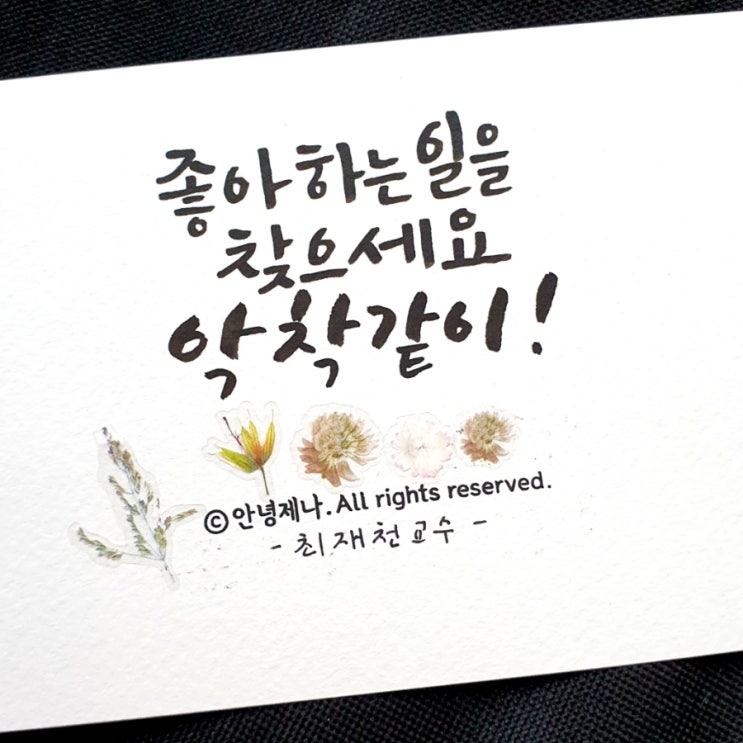 좋아하는일을
찾으세요
악착같이!
©안녕제나. All rights reserved.
- 최재천교수 -